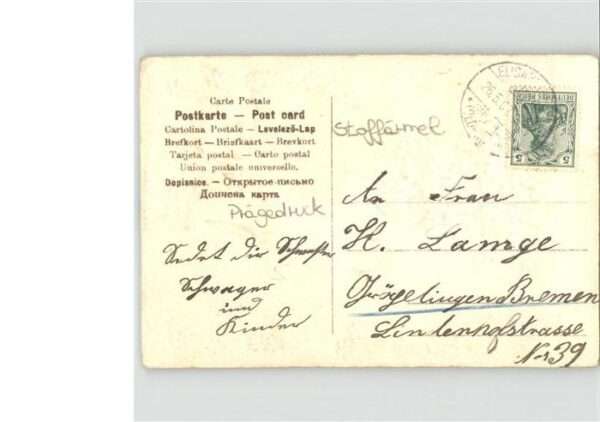 Carte Postale
Postkarte — Post card
Cartolina Postale — Levelező-Lap
Brefkort — Briefkaart — Brevkort
Tarjeta postal — Carto postal
Union postale universelle.
Dopisnice. — Открытое письмо
Дописна карта
Stoffärmel
Prägedruck
Sedet dir Schwester
Schwager
und
Kinder
An Frau
K. Lamge
Gröpelingen Bremen
Lintenhofstrasse
Nr 39
DEUTSCHES REICH
5
5